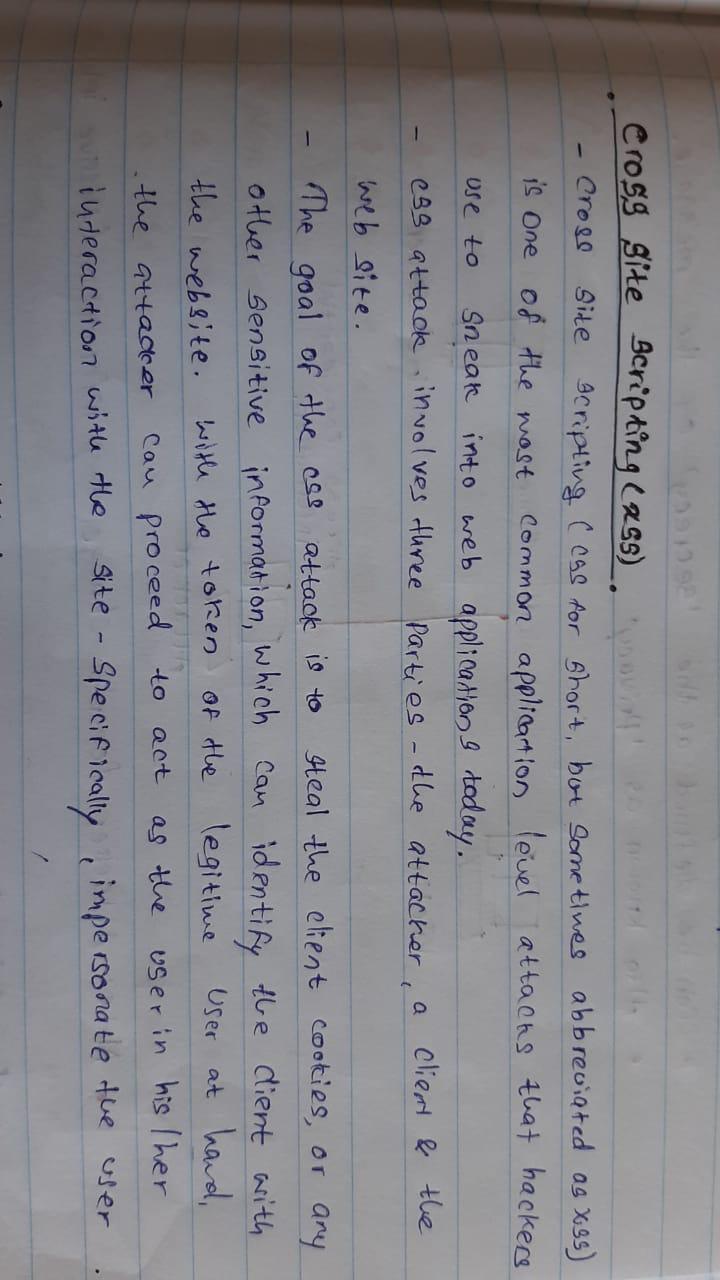 Cross Site Scripting (XSS).
- Cross Site Scripting (CSS for short, but sometimes abbreviated as XSS)
is one of the most common application level attacks that hackers
use to sneak into web applications today.
- CSS attack involves three parties - the attacker, a client & the
web site.
- The goal of the CSS attack is to steal the client cookies, or any
other sensitive information, which can identify the client with
the website. With the token of the legitime User at hand,
the attacker can proceed to act as the user in his/her
interaction with the site - Specifically, impersonate the user.